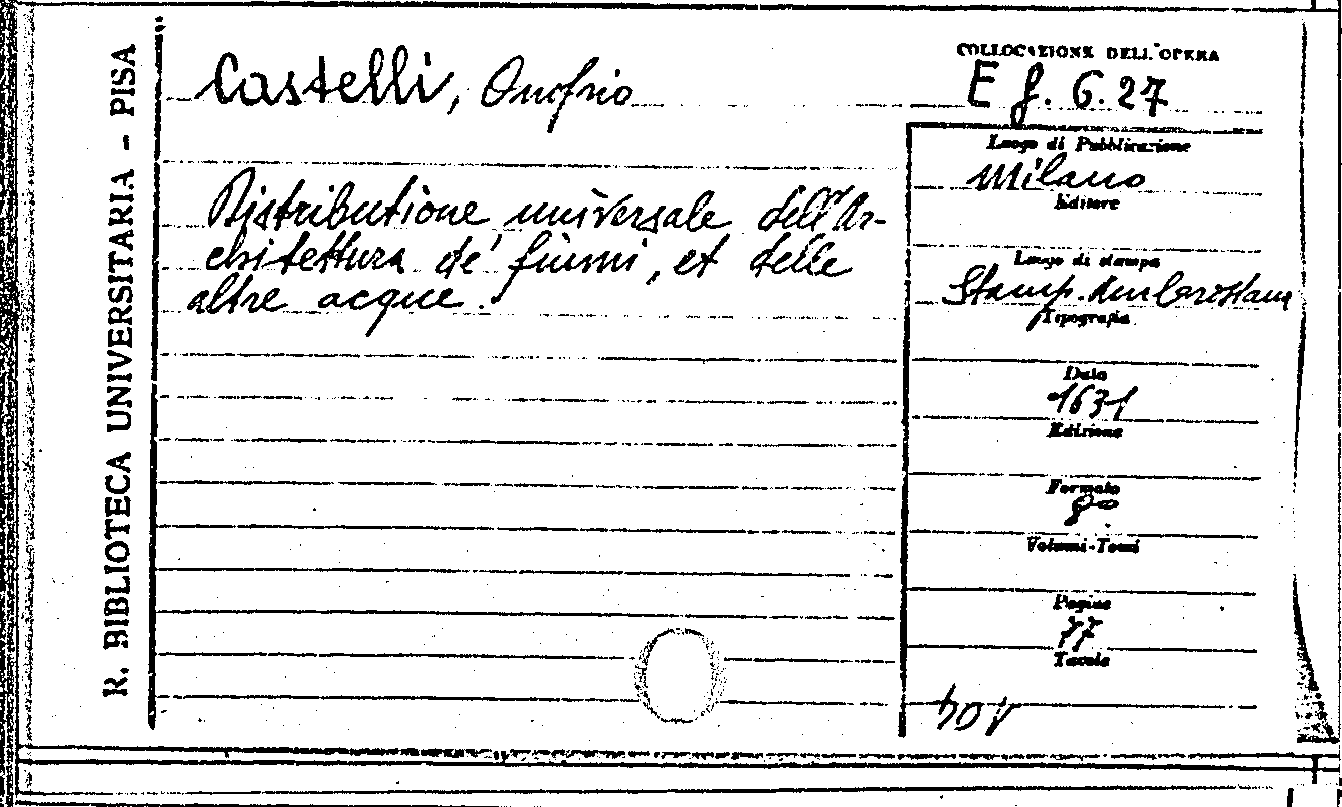 R. BIBLIOTECA UNIVERSITARIA - PISA
Castelli, Onofrio
Distributione universale dell'Ar-
chitettura de' fiumi, et delle
altre acque.
COLLOCAZIONE DELL'OPERA
E f. 6. 27
Luogo di Pubblicazione
Milano
Editore
Luogo di stampa
Stamp. Ambrosiana
Tipografia
Data
1631
Edizione
Formato
8°
Volumi-Tomi
Pagine
77
Tavole